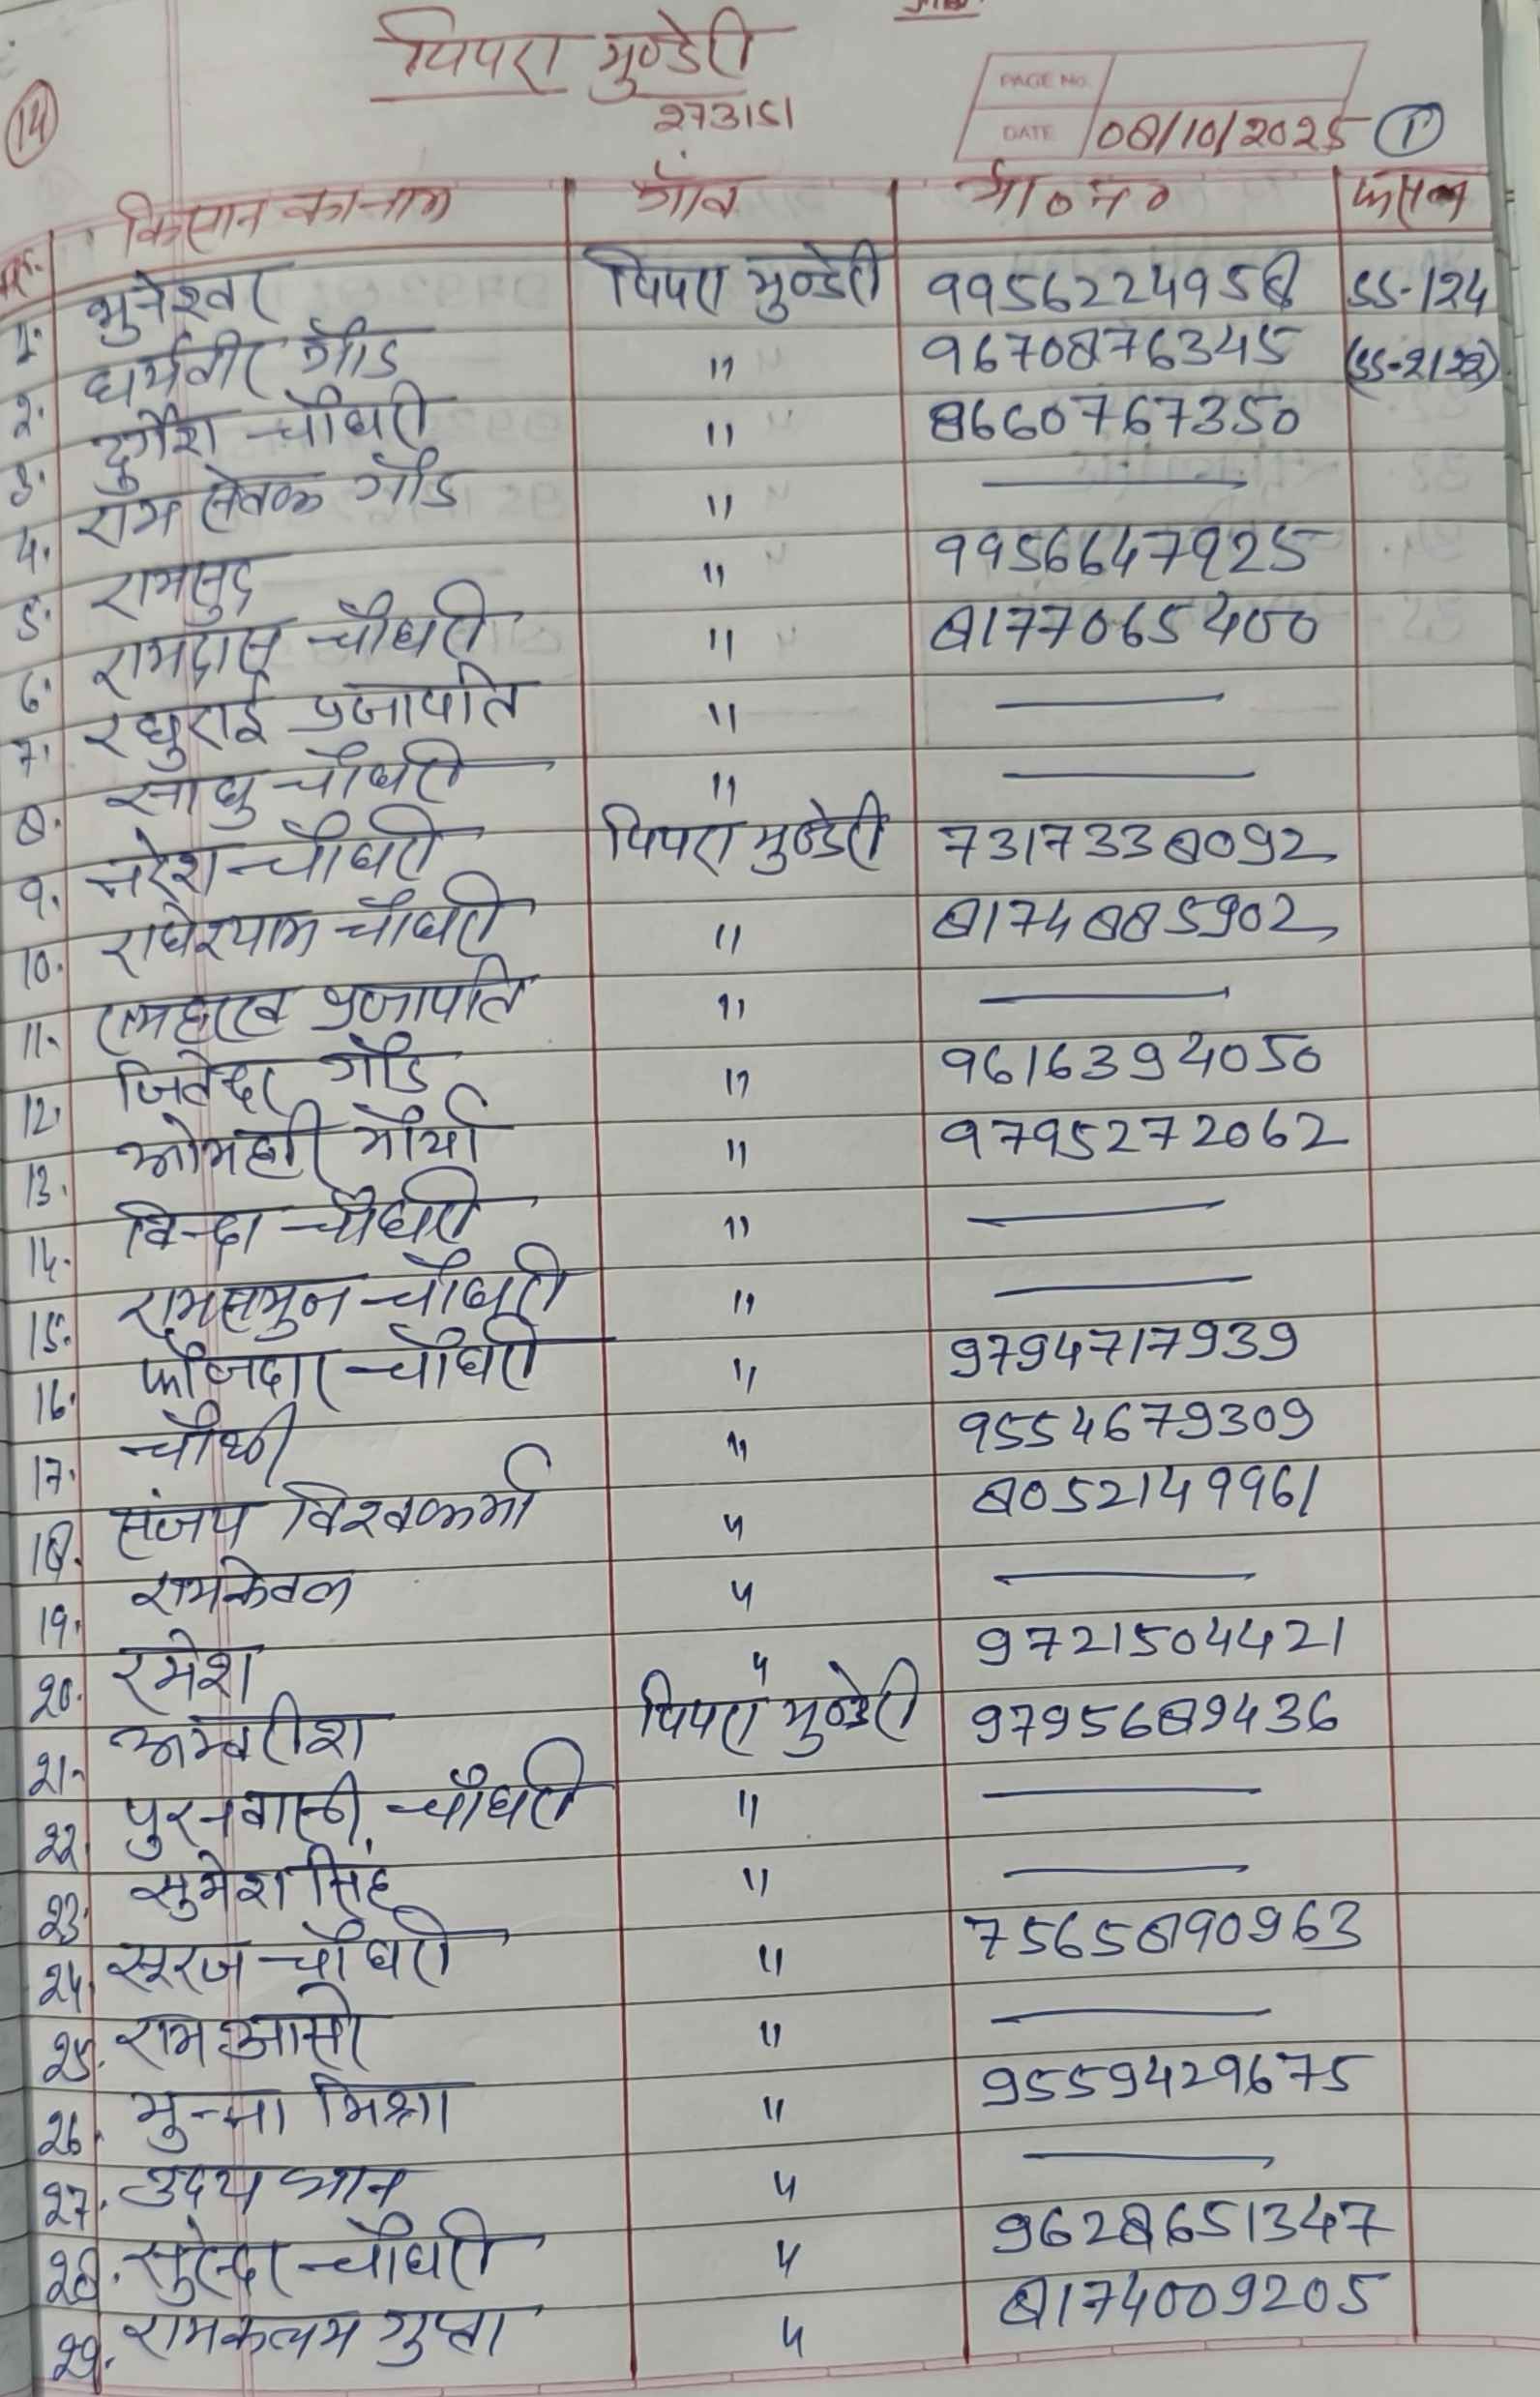 पिपरा मुण्डेरी
273151
14
PAGE NO.
DATE 08/10/2025 1
किसान का नाम गाँव मो०न० फसल
1. भुनेश्वर पिपरा मुण्डेरी 9956224958 SS-124
2. धर्मवीर गौड " 9670876345 (SS-2122)
3. दुर्गेश चौधरी " 8660767350
4. राम सेवक गौड " —
5. रामसुद " 9956647925
6. रामदास चौधरी " 8177065400
7. रघुराई प्रजापति " —
8. साधु चौधरी " —
9. नरेश चौधरी पिपरा मुण्डेरी 7317338092
10. राधेश्याम चौधरी " 8174885902
11. प्रजापति " —
12. जितेन्द्र गौड " 9616394050
13. ओमहरी मौर्या " 9795272062
14. विन्दा चौधरी " —
15. रामसमुज चौधरी " —
16. फौजदार चौधरी " 9794717939
17. चौथी " 9554679309
18. संजय विश्वकर्मा " 8052149961
19. रामकेवल " —
20. रमेश " 9721504421
21. अम्बरीश पिपरा मुण्डेरी 9795689436
22. पुरनवासी चौधरी " —
23. सुमेश सिंह " —
24. सूरज चौधरी " 7565890963
25. राम आसरे " —
26. मुन्ना मिश्रा " 9559429675
27. उदय भान " —
28. सुरेन्द्र चौधरी " 9628651347
29. रामकलम गुप्ता " 8174009205